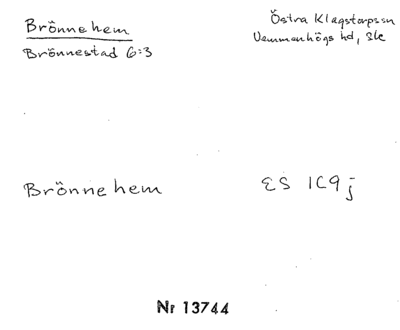 Brönnehem
Brönnestad 6:3
Östra Klagstorpssn
Vemmenhögs hd, Ske
Brönnehem
ES 1C9j
Nr 13744